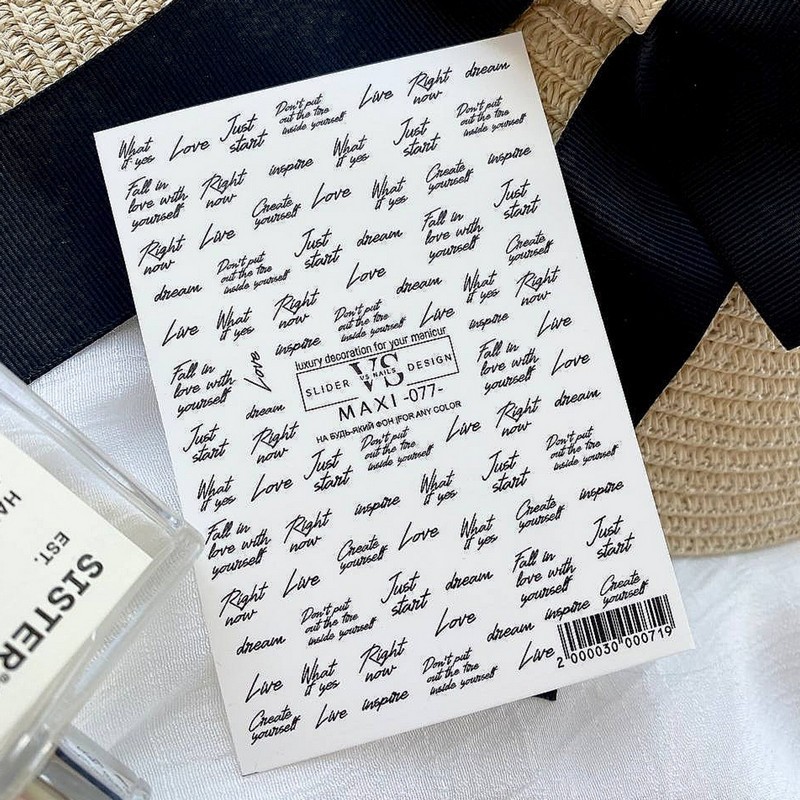 What
if yes
Love
Just
start
Don't put
out the fire
inside yourself
Live
Right
now
dream
Fall in
love with
yourself
Right
now
inspire
What
if yes
Just
start
Don't put
out the fire
inside yourself
Right
now
Live
Create
yourself
Love
What
if yes
Create
yourself
inspire
dream
Don't put
out the fire
inside yourself
Just
start
dream
Fall in
love with
yourself
Just
start
Live
What
if yes
Right
now
Love
dream
Create
yourself
Fall in
love with
yourself
Love
inspire
Don't put
out the fire
inside yourself
Live
What
if yes
Right
now
dream
inspire
Live
luxury decoration for your manicur
SLIDER VS DESIGN
VS NAILS
MAXI -077-
НА БУДЬ-ЯКИЙ ФОН |FOR ANY COLOR
Fall in
love with
yourself
Love
Just
start
Right
now
Don't put
out the fire
inside yourself
Live
Right
now
dream
What
if yes
Love
Just
start
inspire
What
if yes
Just
start
Don't put
out the fire
inside yourself
Fall in
love with
yourself
Right
now
Create
yourself
Love
What
if yes
Create
yourself
inspire
Right
now
Live
Just
start
dream
Fall in
love with
yourself
Just
start
dream
Don't put
out the fire
inside yourself
Love
dream
inspire
Create
yourself
Live
What
if yes
Right
now
Don't put
out the fire
inside yourself
Live
Create
yourself
Live
inspire
2 000030 000719
SISTER®
EST.
HA